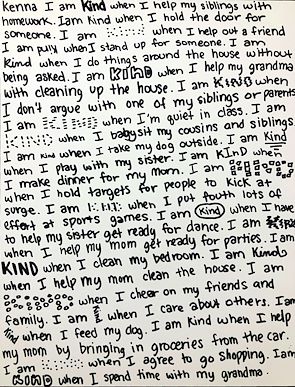 Kenna I am Kind when I help my siblings with
homework. I am Kind when I hold the door for
someone. I am KIND when I help out a friend
I am when I stand up for someone. I am
Kind when I do things around the house without
being asked. I am KIND when I help my grandma
with cleaning up the house. I am KIND when
I don't argue with one of my siblings or parents
I am KIND when I'm quiet in class. I am
KIND when I babysit my cousins and siblings.
I am Kind when I take my dog outside. I am Kind
when I play with my sister. I am KIND when
I make dinner for my mom. I am KIND
when I hold targets for people to kick at
surge. I am KIND when I put fouth lots of
effort at sports games. I am Kind when I have
to help my sister get ready for dance. I am KIND
when I help my mom get ready for parties. I am
KIND when I clean my bedroom. I am Kind
when I help my mom clean the house. I am
KIND when I cheer on my friends and
family. I am KIND when I care about others. I am
KIND when I feed my dog. I am Kind when I help
my mom by bringing in groceries from the car.
I am KIND when I agree to go shopping. I am
KIND when I spend time with my grandma.